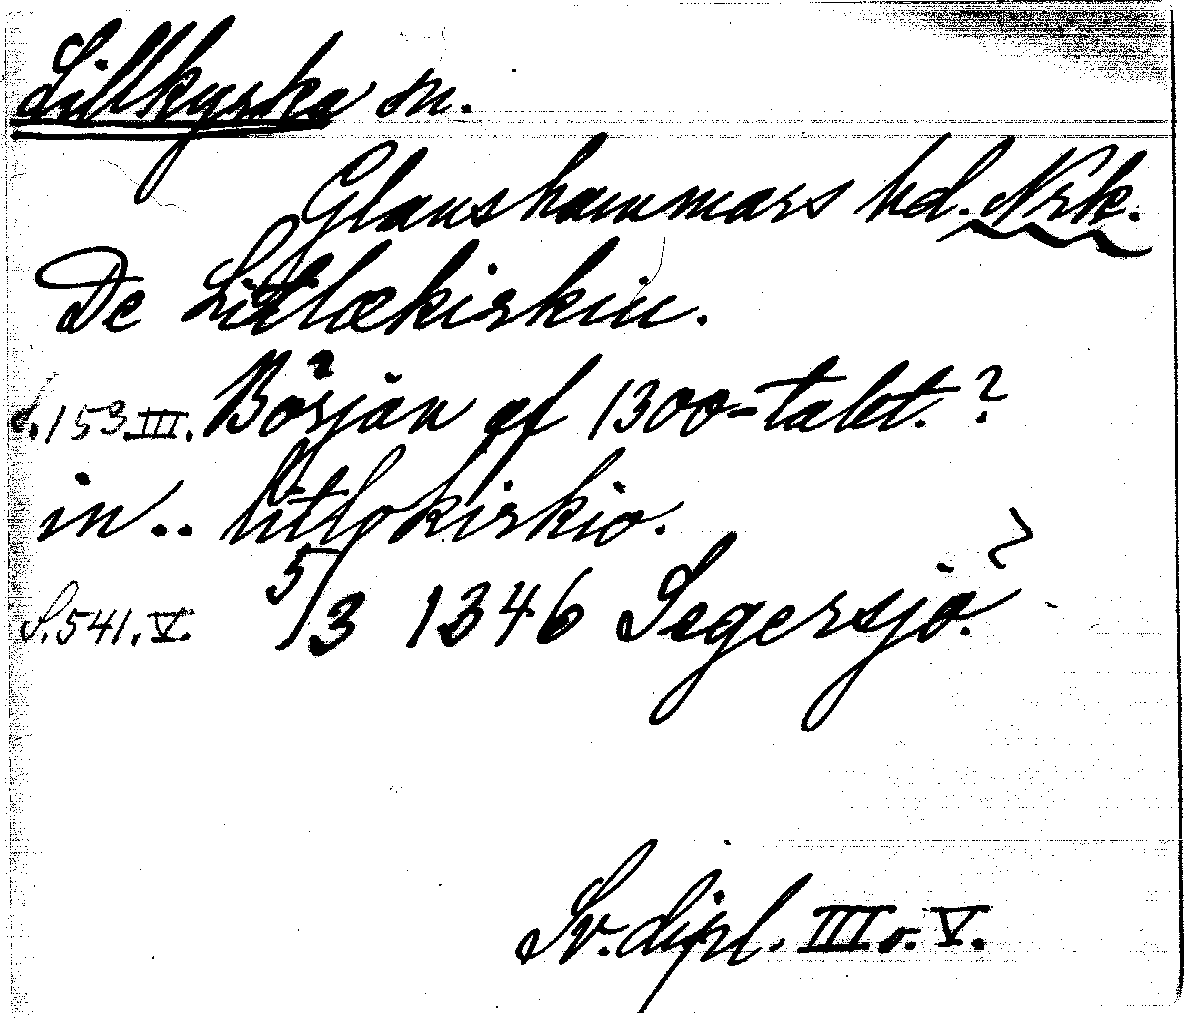 Lillkyrka sn.
Glanshammars hd. Nrk.
De Litlækirkiu.
s. 153. III. Början af 1300-talet. ?
in .. litlokirkio.
S. 541. V. 5/3 1346 Segersjö. ?
Sv. dipl. III o. V.